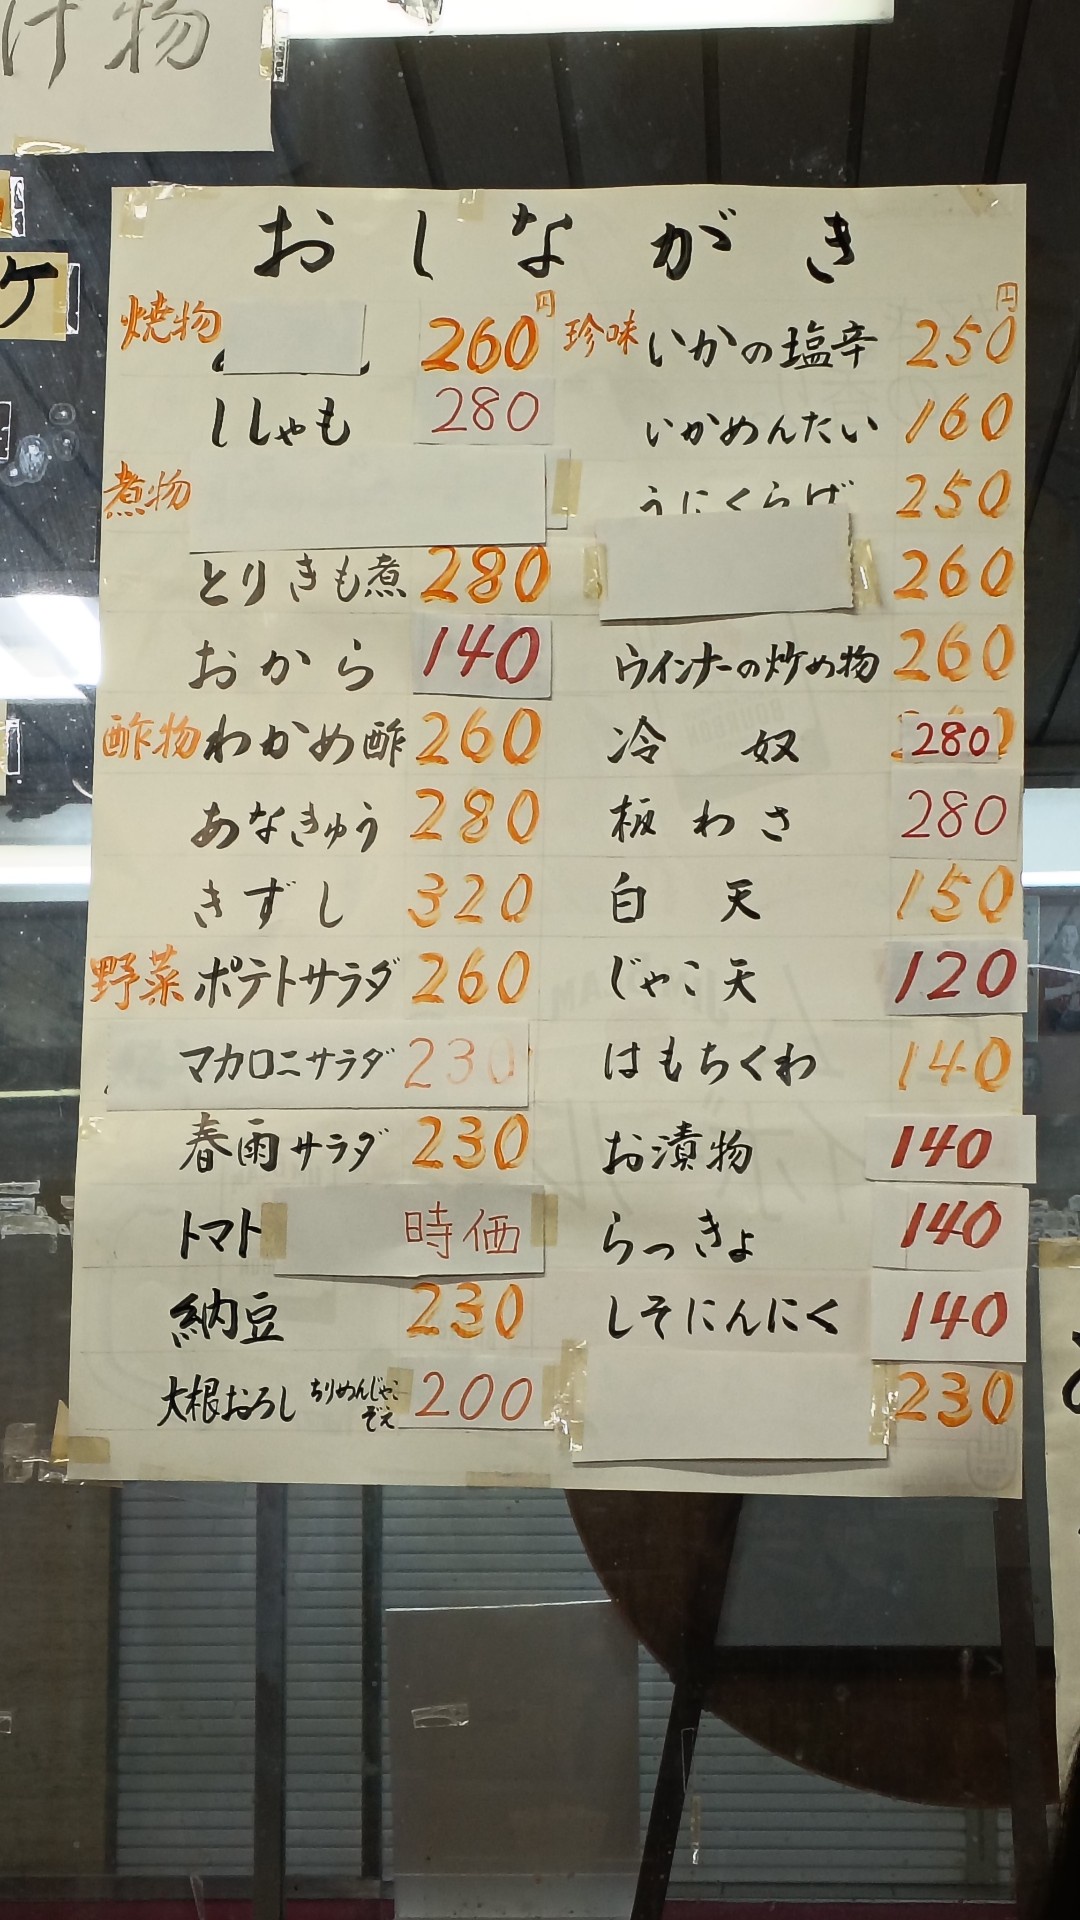 け物
ケ
おしながき
円
焼物 260
ししゃも 280
煮物
とりきも煮 280
おから 140
酢物 わかめ酢 260
あなきゅう 280
きずし 320
野菜 ポテトサラダ 260
マカロニサラダ 230
春雨サラダ 230
トマト 時価
納豆 230
大根おろし ちりめんじゃこぞえ 200
円
珍味 いかの塩辛 250
いかめんたい 160
うにくらげ 250
260
ウインナーの炒め物 260
冷奴 280
板わさ 280
白天 150
じゃこ天 120
はもちくわ 140
お漬物 140
らっきょ 140
しそにんにく 140
230